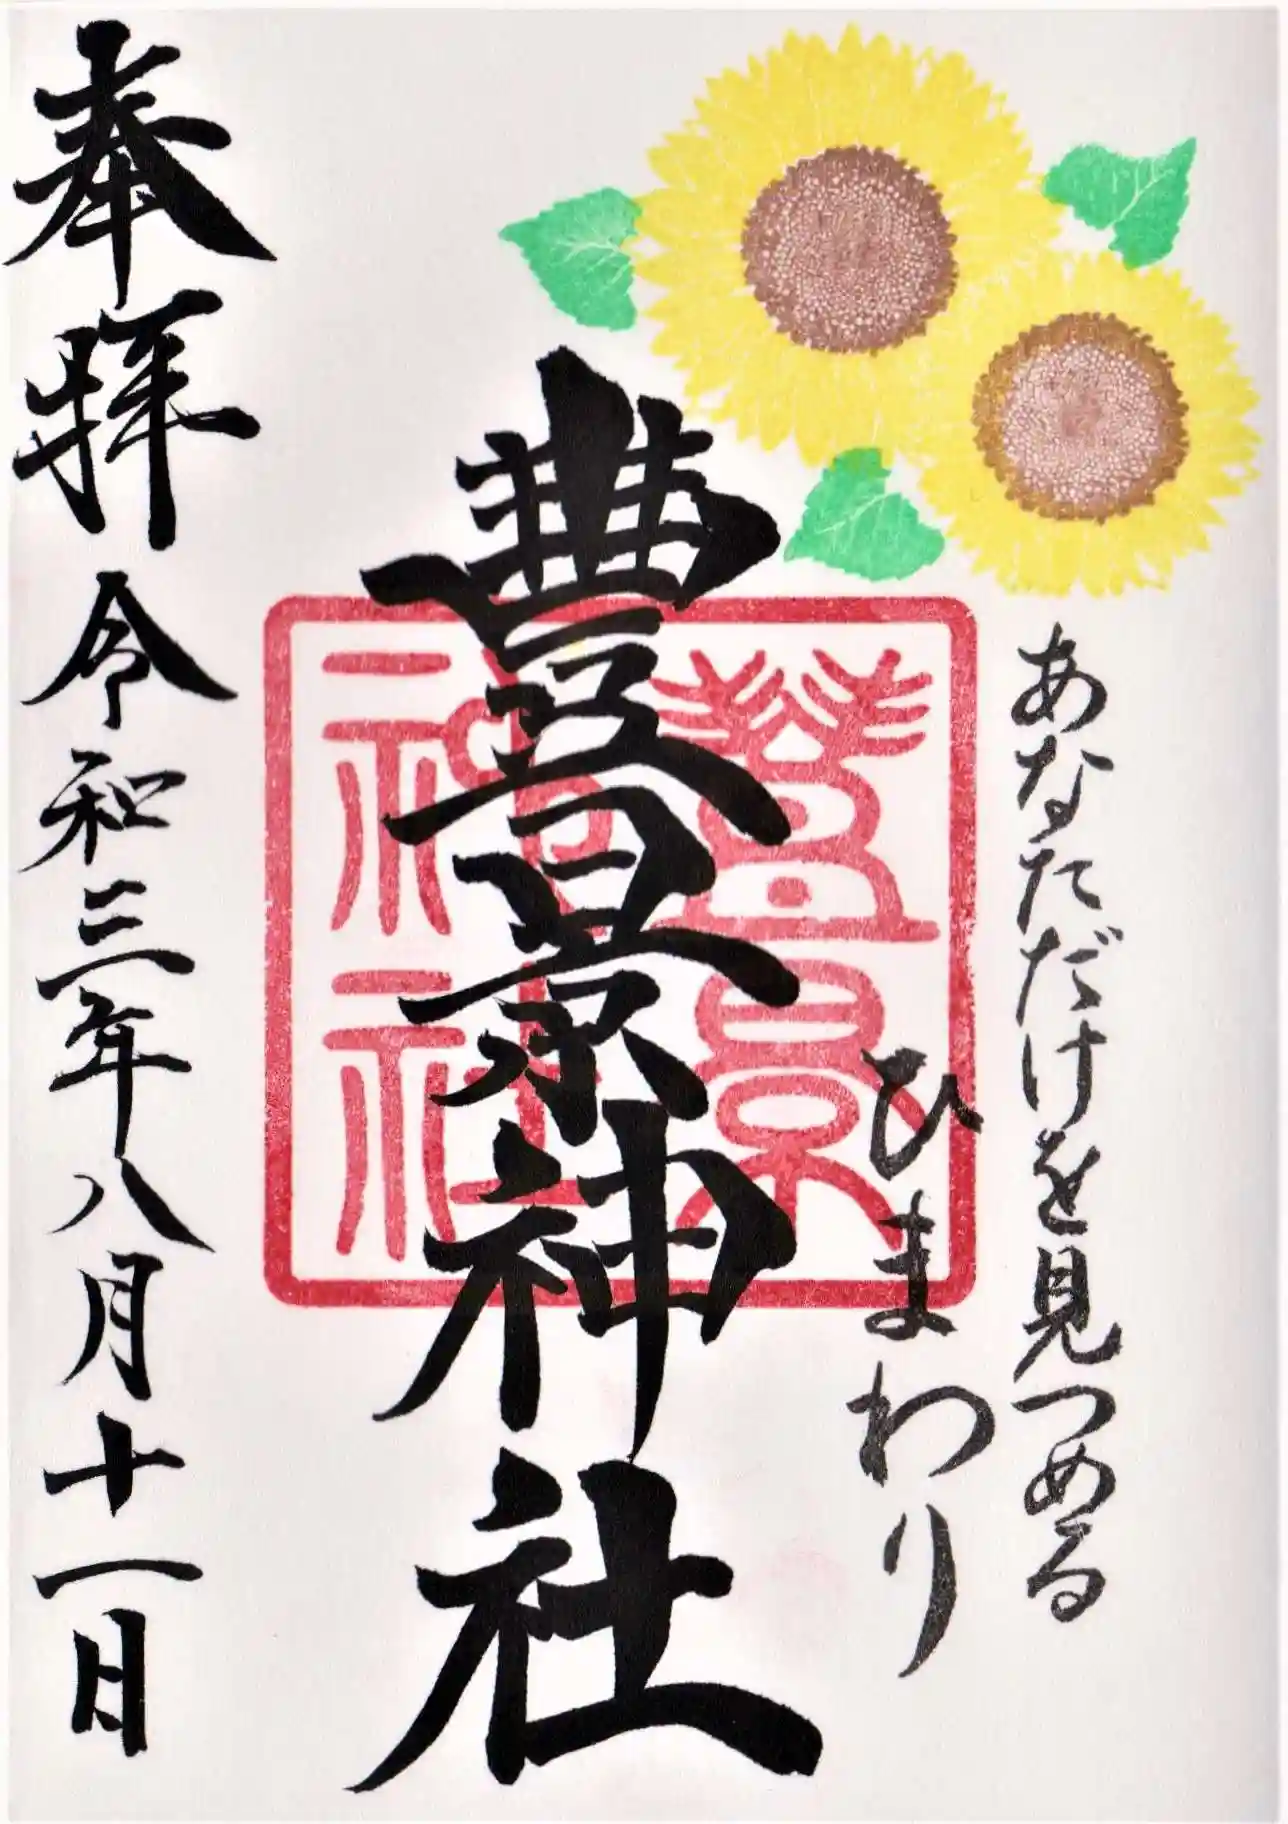 あなただけを見つめる
ひまわり
豊景神社
豊景
神社
奉拝 令和三年八月十一日